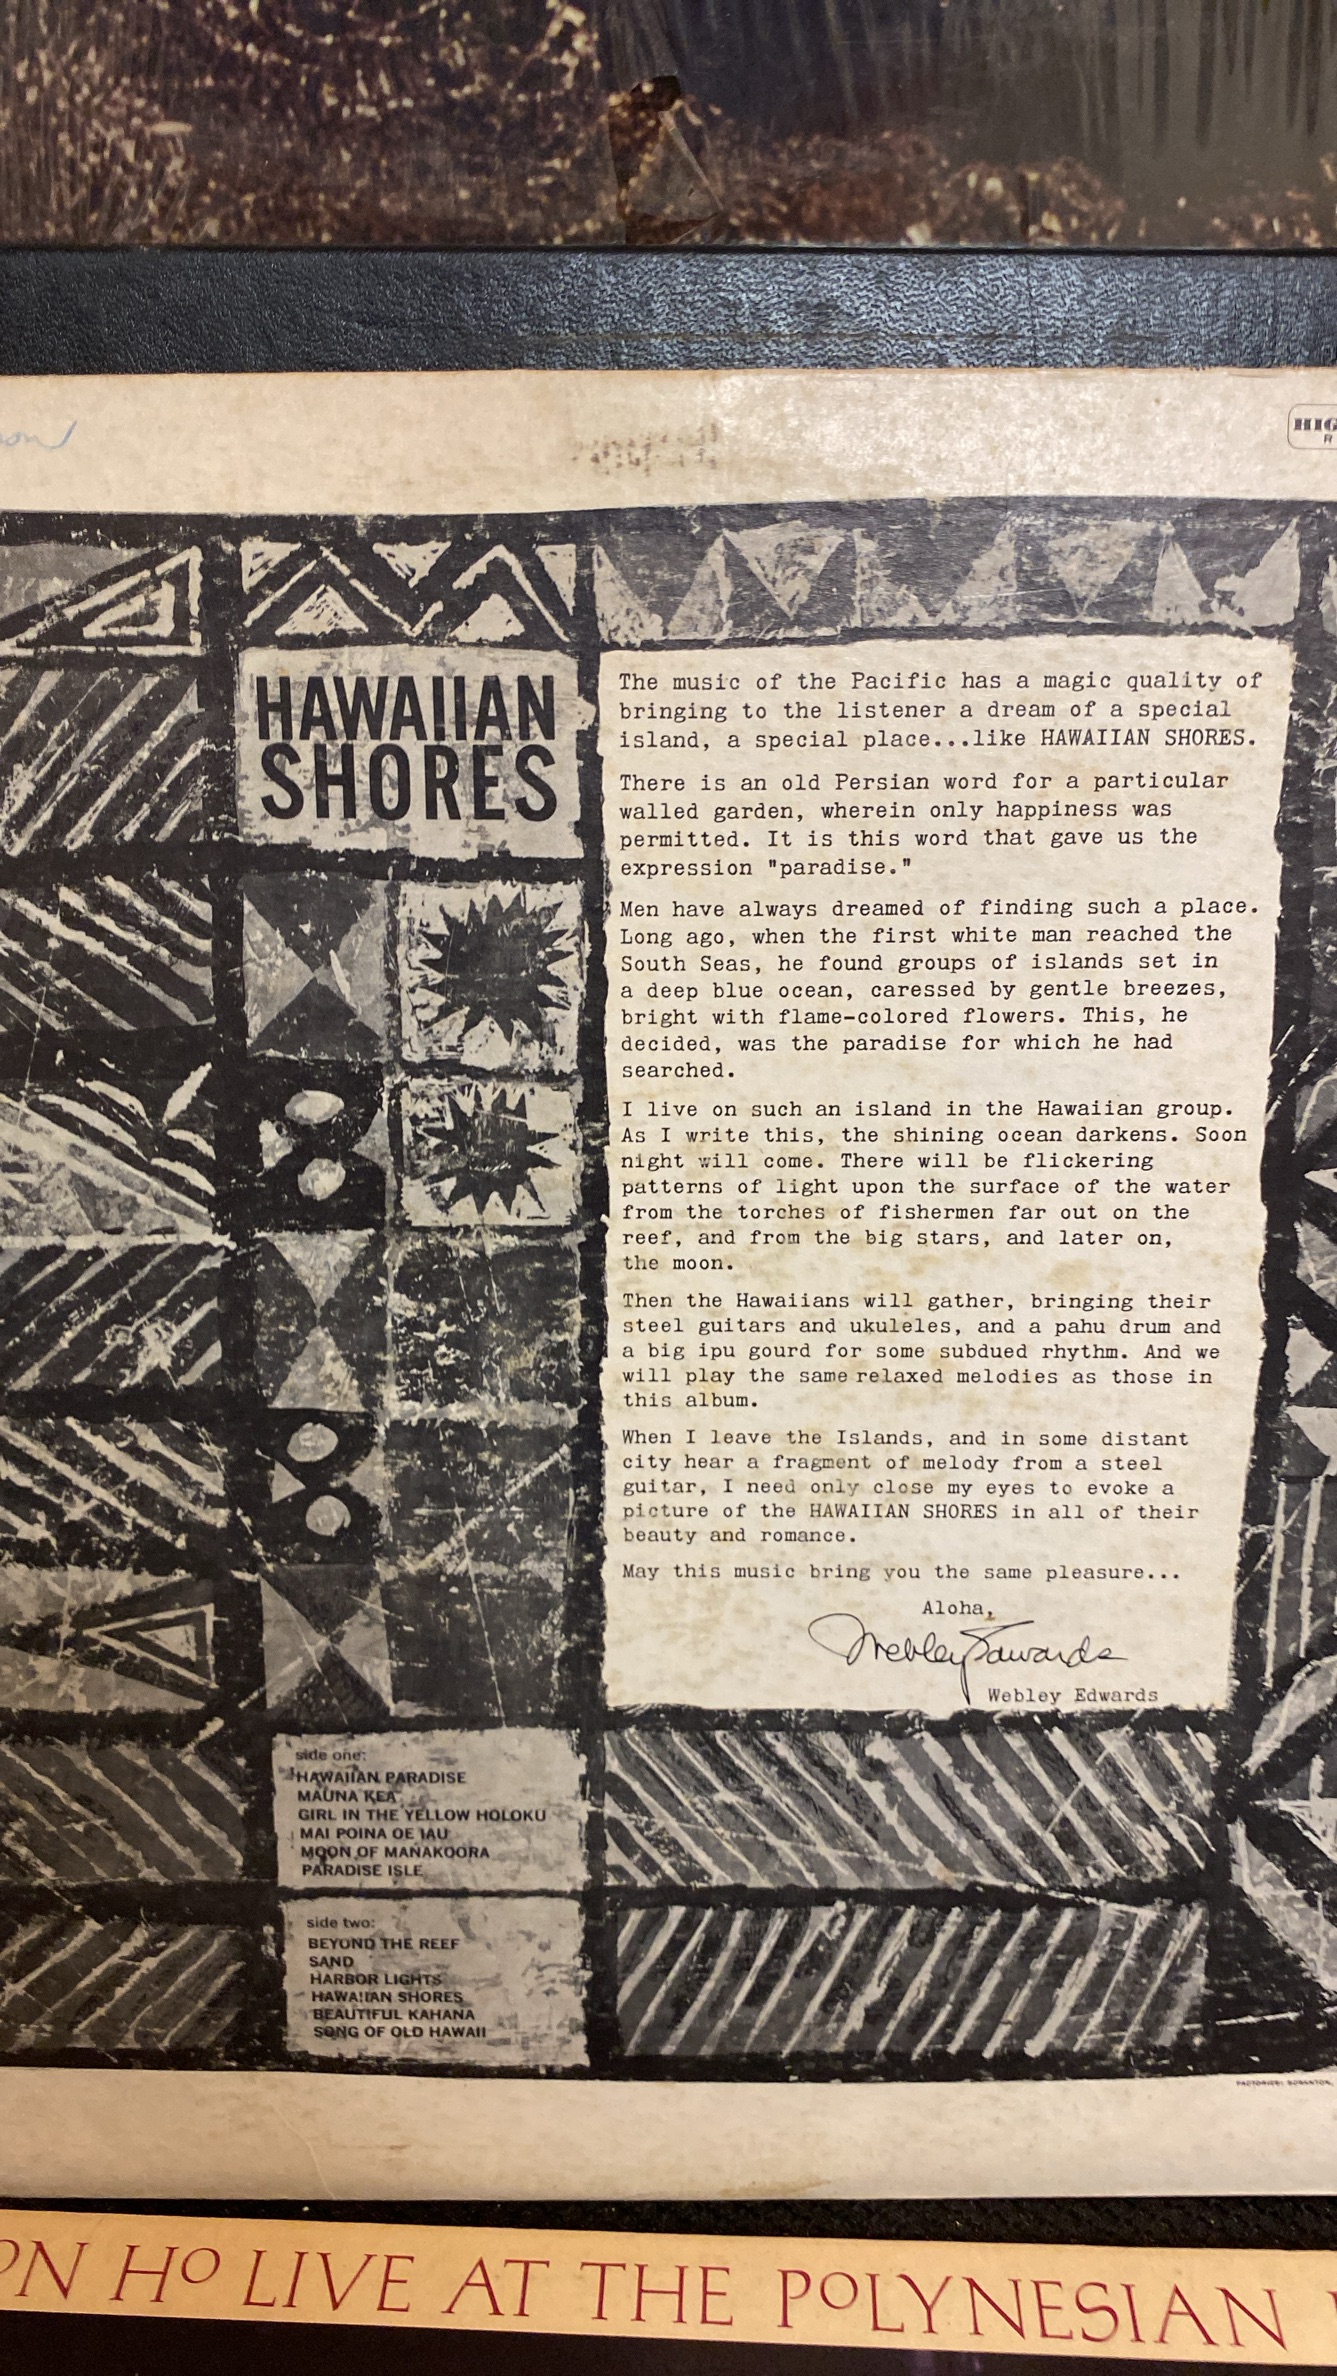 HAWAIIAN
SHORES
The music of the Pacific has a magic quality of
bringing to the listener a dream of a special
island, a special place...like HAWAIIAN SHORES.
There is an old Persian word for a particular
walled garden, wherein only happiness was
permitted. It is this word that gave us the
expression "paradise."
Men have always dreamed of finding such a place.
Long ago, when the first white man reached the
South Seas, he found groups of islands set in
a deep blue ocean, caressed by gentle breezes,
bright with flame-colored flowers. This, he
decided, was the paradise for which he had
searched.
I live on such an island in the Hawaiian group.
As I write this, the shining ocean darkens. Soon
night will come. There will be flickering
patterns of light upon the surface of the water
from the torches of fishermen far out on the
reef, and from the big stars, and later on,
the moon.
Then the Hawaiians will gather, bringing their
steel guitars and ukuleles, and a pahu drum and
a big ipu gourd for some subdued rhythm. And we
will play the same relaxed melodies as those in
this album.
When I leave the Islands, and in some distant
city hear a fragment of melody from a steel
guitar, I need only close my eyes to evoke a
picture of the HAWAIIAN SHORES in all of their
beauty and romance.
May this music bring you the same pleasure...
Aloha,
Webley Edwards
Webley Edwards
side one:
HAWAIIAN PARADISE
MAUNA KEA
GIRL IN THE YELLOW HOLOKU
MAI POINA OE IAU
MOON OF MANAKOORA
PARADISE ISLE
side two:
BEYOND THE REEF
SAND
HARBOR LIGHTS
HAWAIIAN SHORES
BEAUTIFUL KAHANA
SONG OF OLD HAWAII
FACTORIES: SCRANTON,
ON HO LIVE AT THE POLYNESIAN